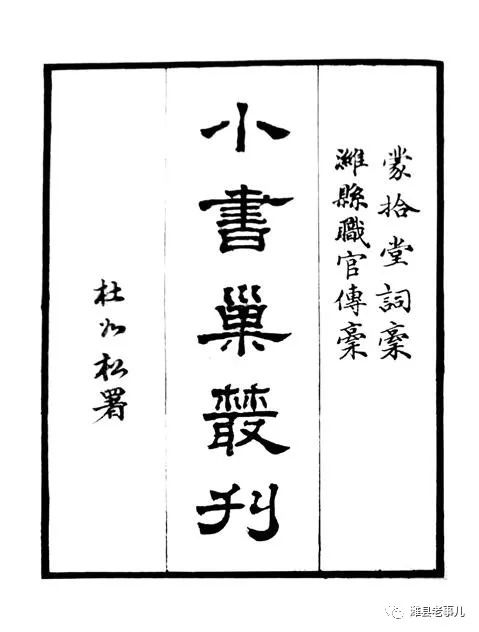 蒙拾堂詞稾
濰縣職官傳稾
小書巢叢刊
杜乃松署
潍县老事儿